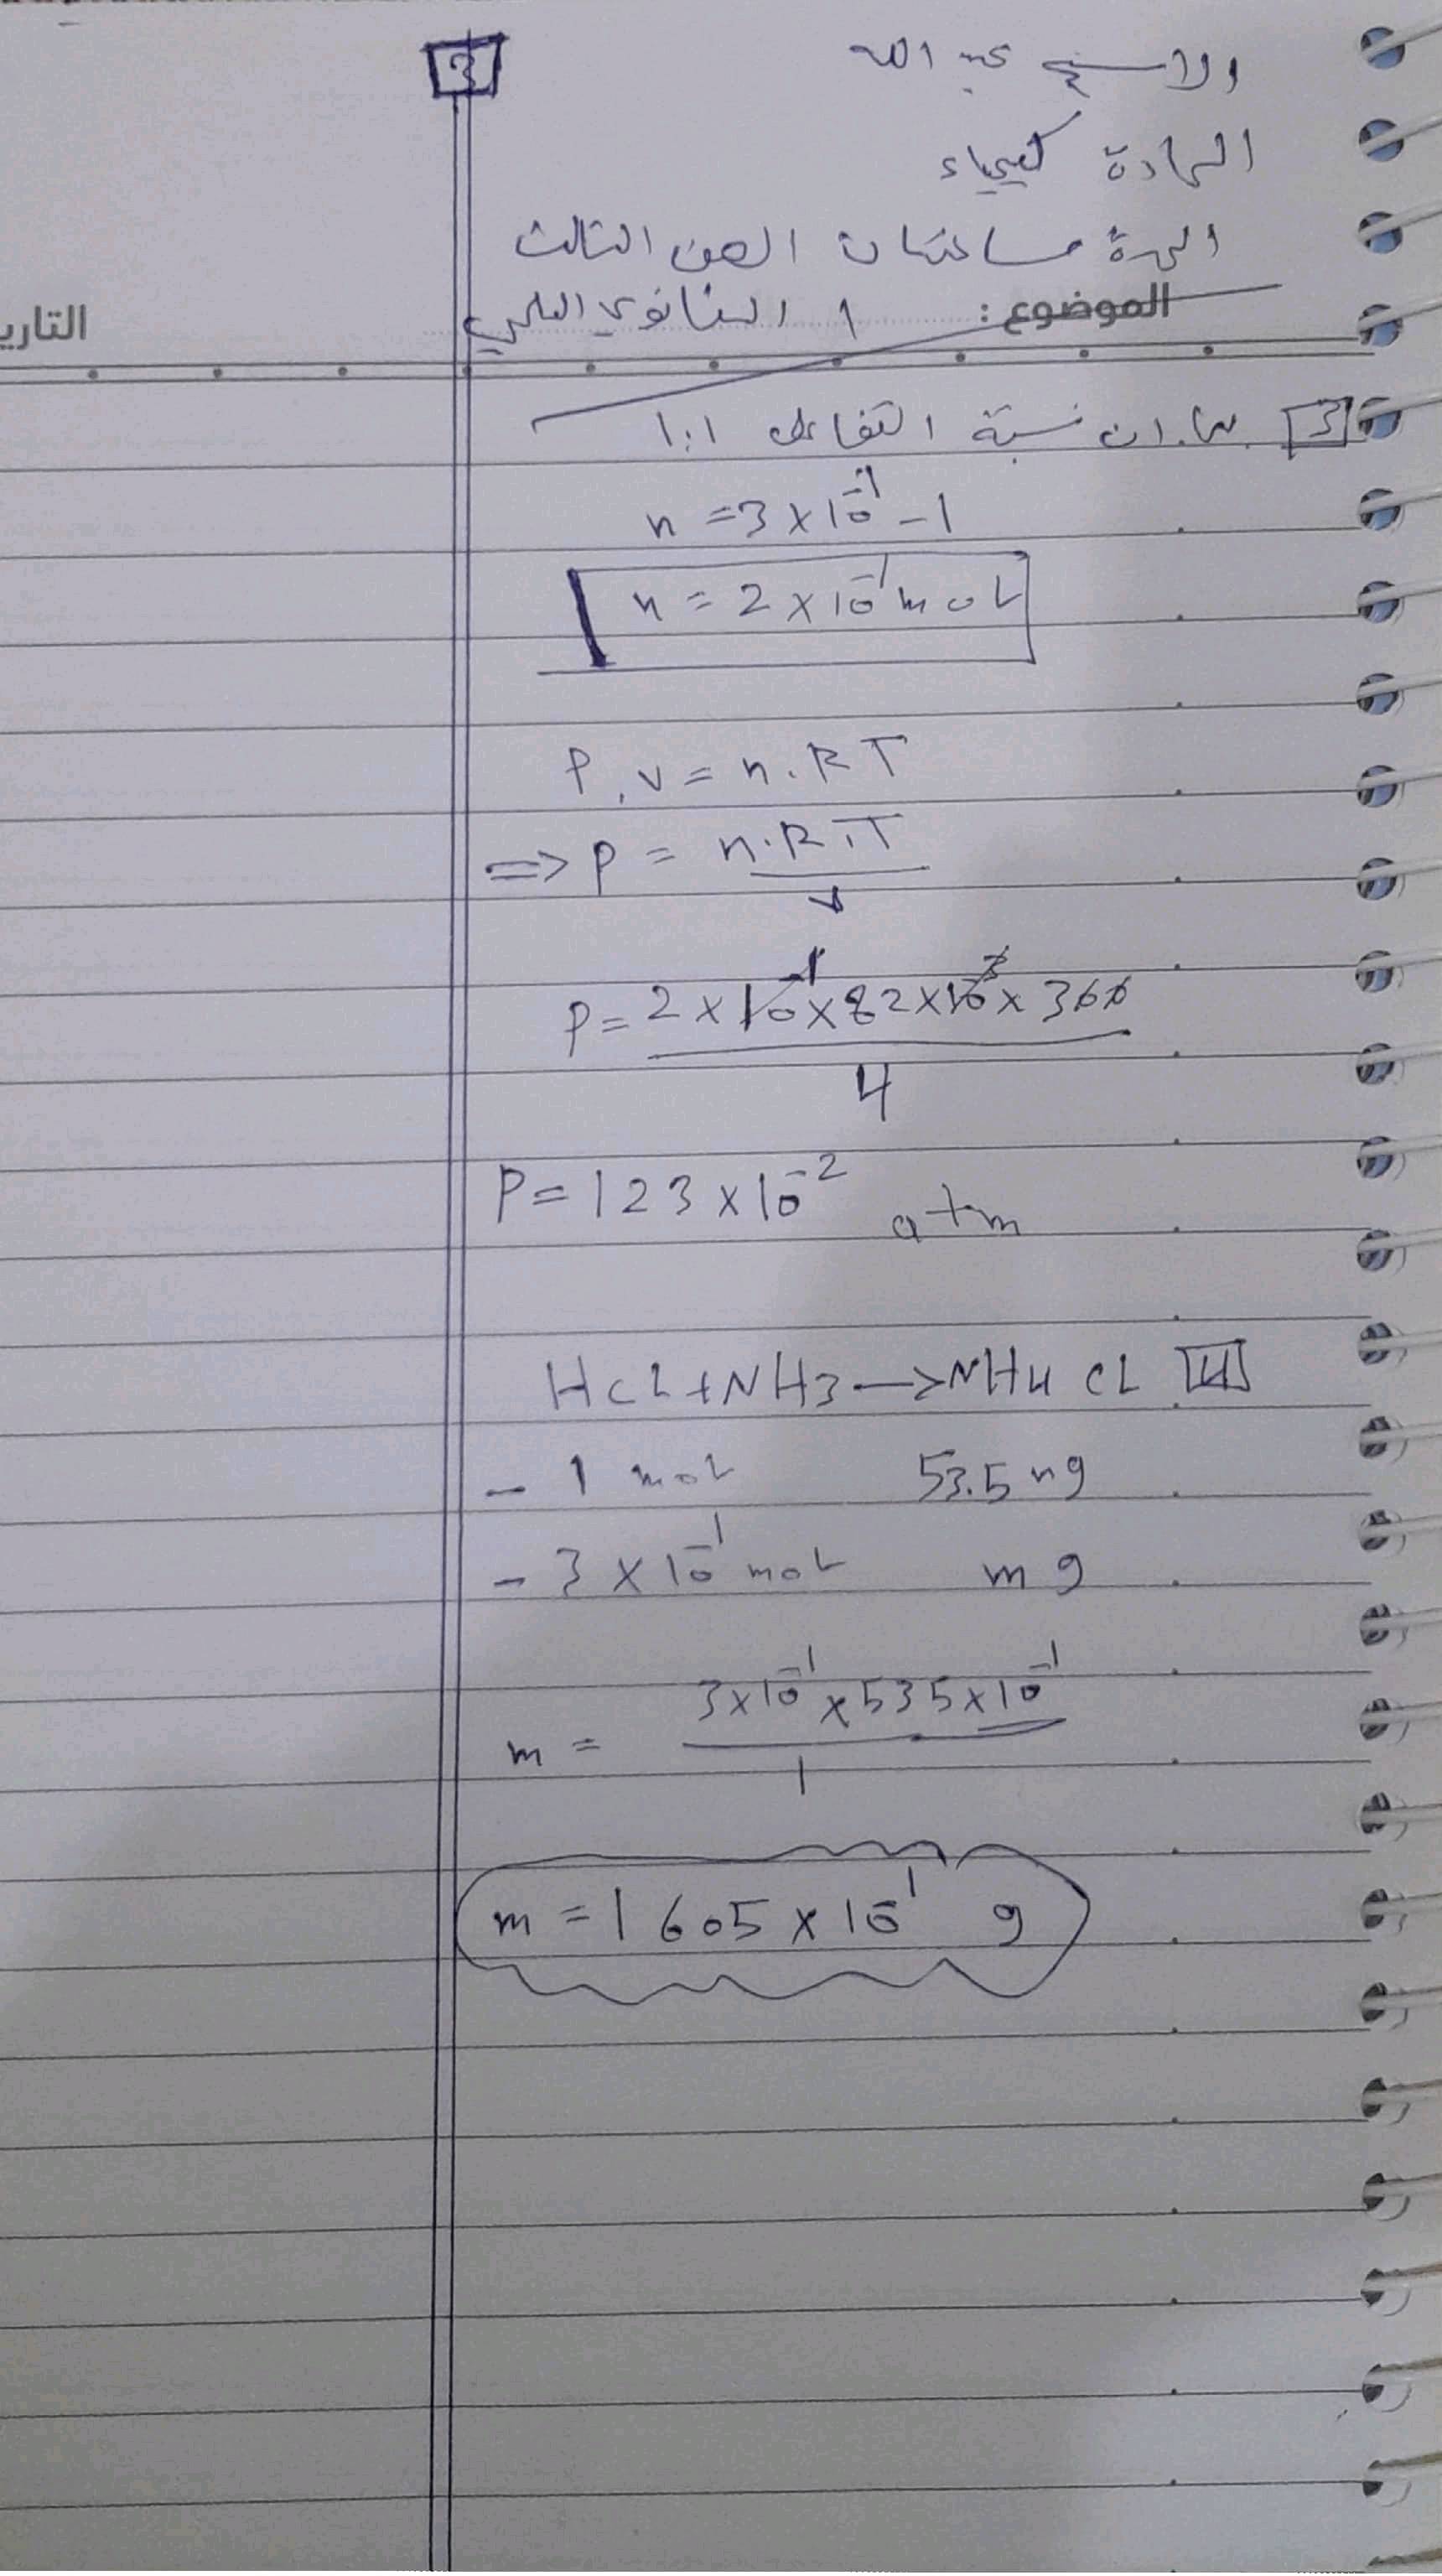 3
والاسم عبد الله
المادة كيمياء
المدة ساعتان الصف الثالث
الموضوع : ١ الثانوي العلمي
التاري
3 بما ان نسبة التفاعل 1:1
n = 3 × 10⁻¹ - 1
n = 2 × 10⁻¹ mol
P . v = n . R T
=> P = n . R . T / v
P = 2 × 10⁻¹ × 82 × 10⁻³ × 300 / 4
P = 123 × 10⁻² atm
HCl + NH3 —> NH4 CL 4
- 1 mol 53.5 g
- 3 × 10⁻¹ mol m g
m = 3×10⁻¹ × 535×10⁻¹ / 1
m = 1605 × 10⁻¹ g